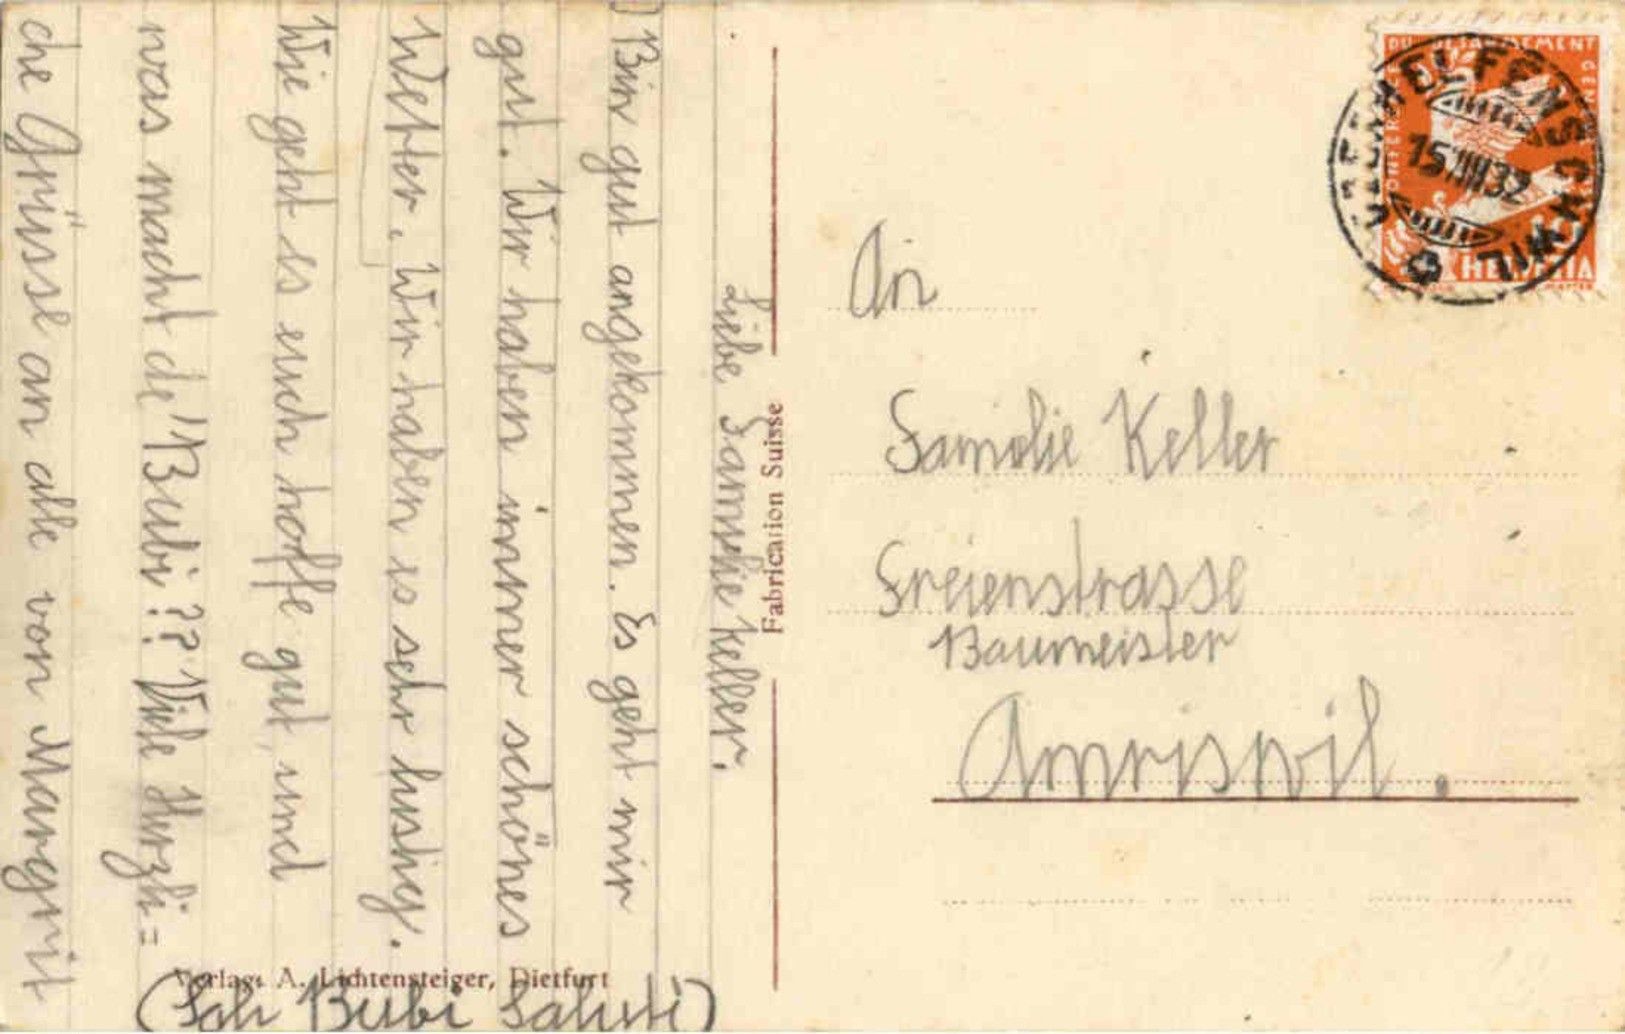 Liebe Familie Keller.
Bin gut angekommen. Es geht mir
gut. Wir haben immer schönes
Wetter. Wir haben es sehr lustig.
Wie geht es euch hoffe gut, und
was macht de' Bubi?? Viele Herzli=
che Grüsse an alle von Margrit
(Sali Bubi Saluti)
Verlag: A. Lichtensteiger, Dietfurt
Fabrication Suisse
HELFENSCHWIL
15.VIII.32
HELVETIA
An
Familie Keller
Freienstrasse
Baumeister
Amriswil.